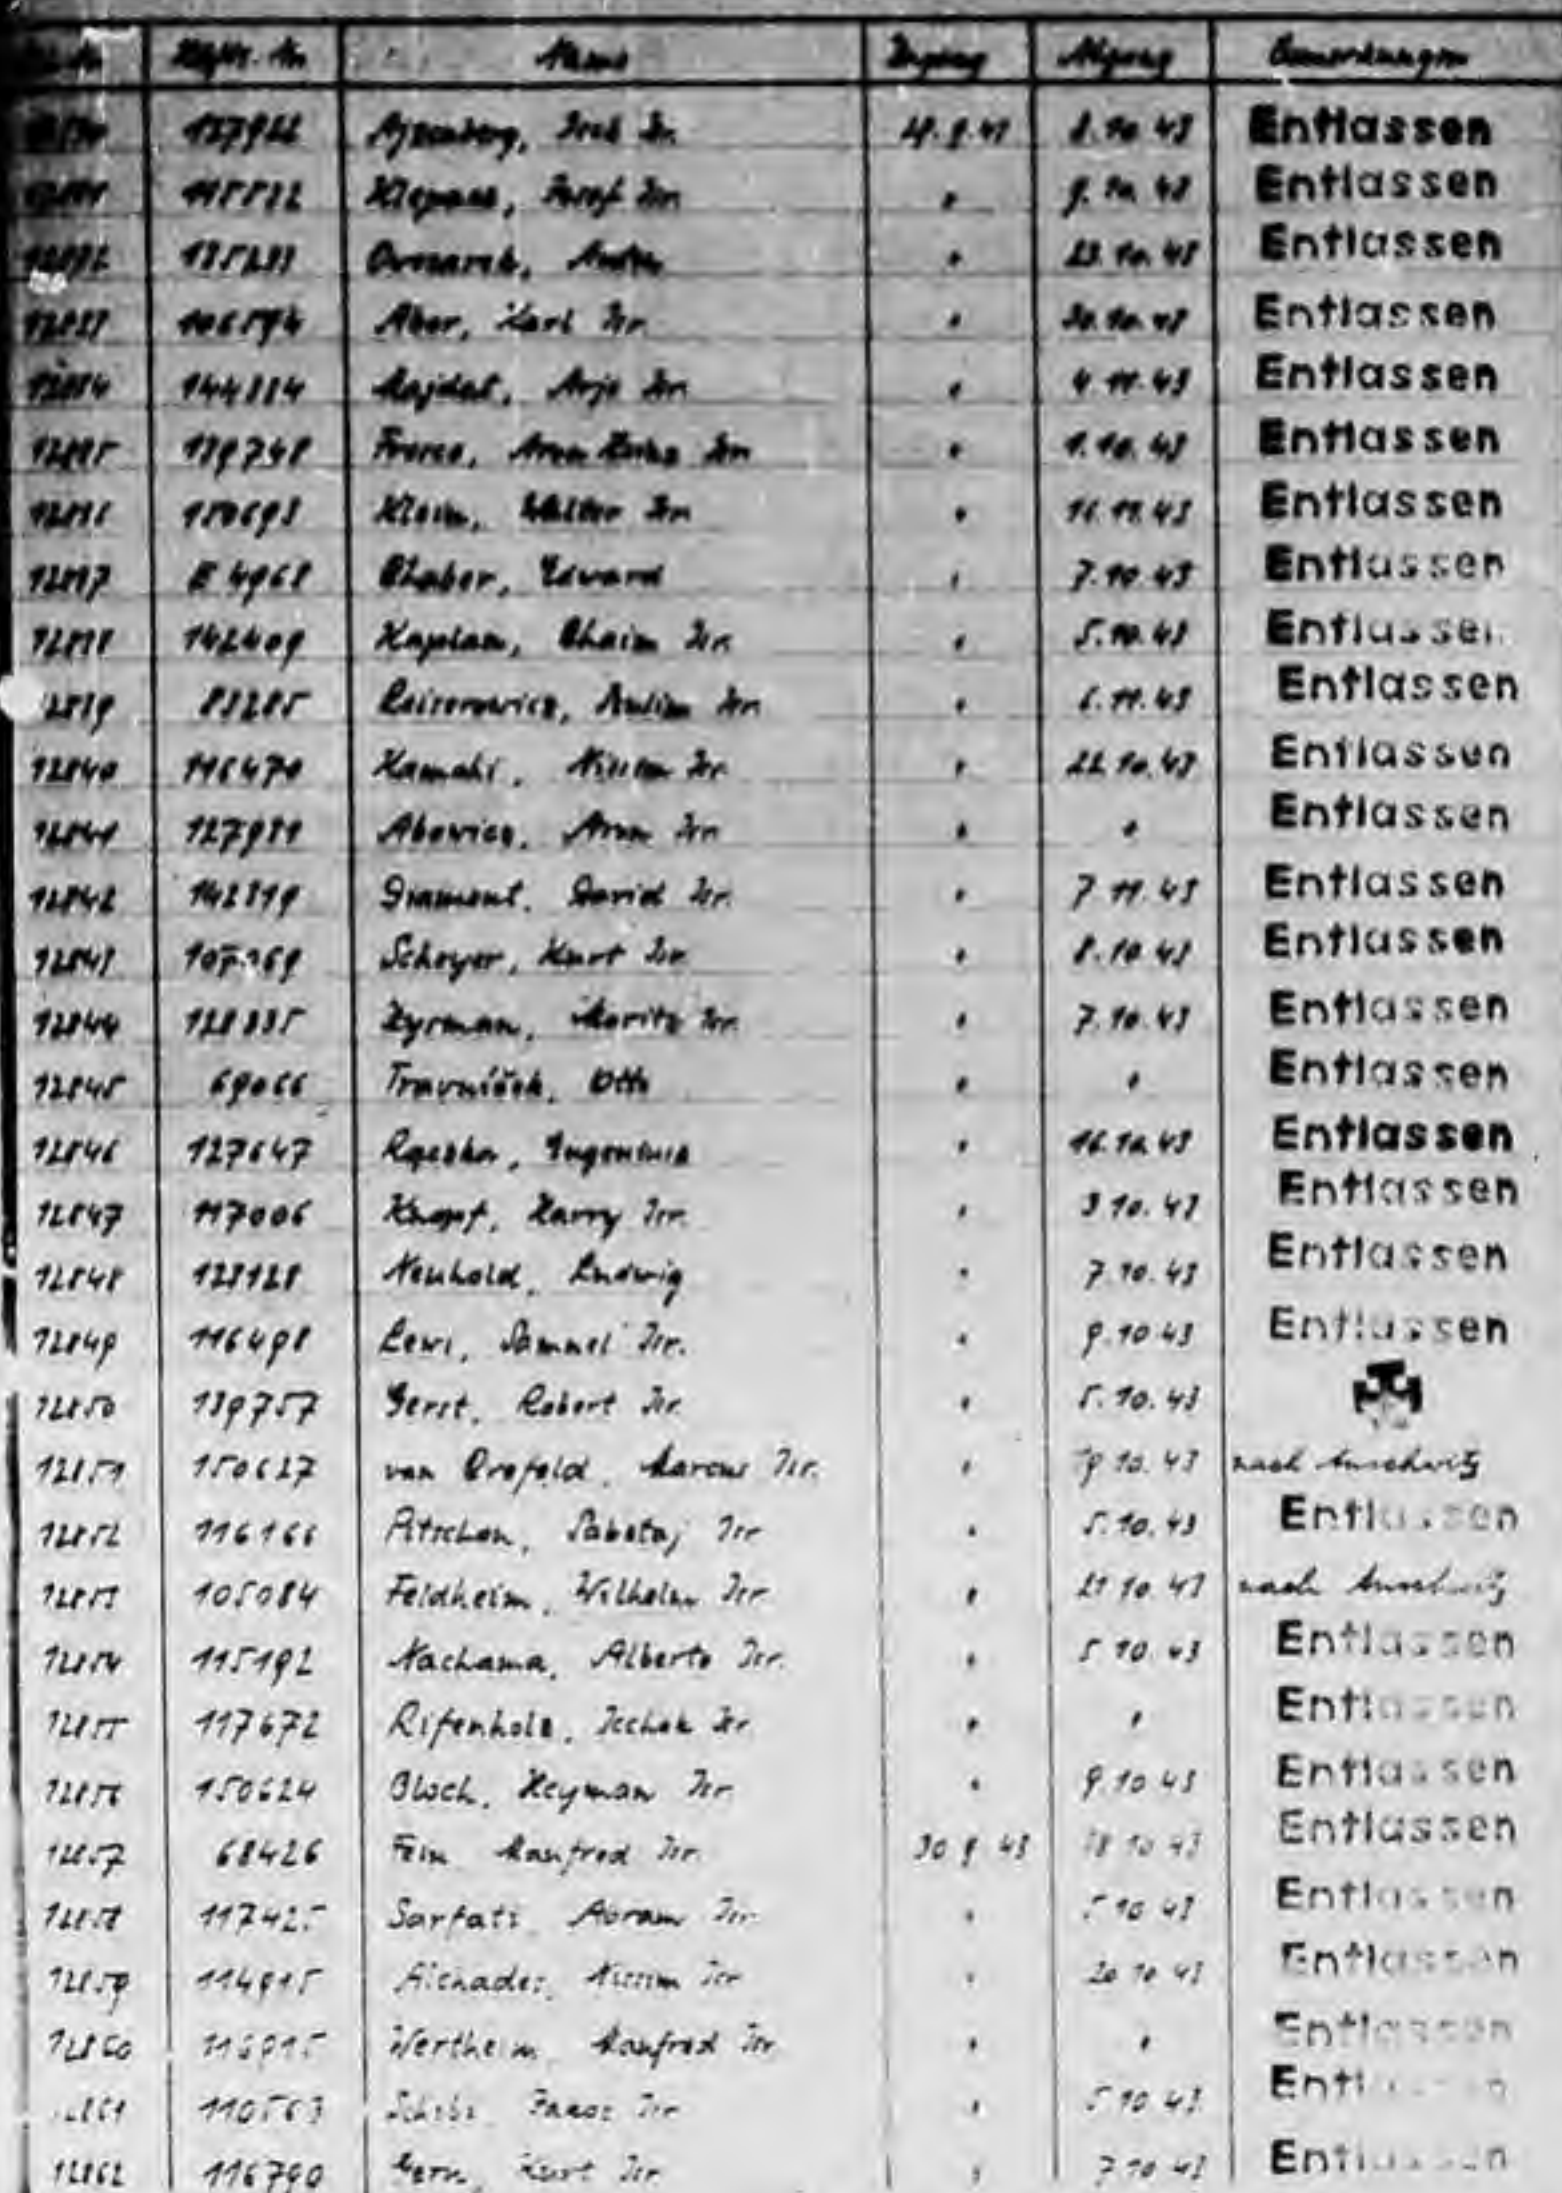 Name Zugang Abgang Bemerkungen
Isr. 8.10.43 Entlassen
Josef Isr. " 9.10.43 Entlassen
" 23.10.43 Entlassen
106594 Aber, Karl Isr. " 30.10.43 Entlassen
12834 144334 Majdat, Arje Isr. " 4.11.43 Entlassen
12835 139748 Isr. " 1.10.43 Entlassen
12836 150693 Klein, Walter Isr. " 16.11.43 Entlassen
12837 E 4968 Chaber, Edward " 7.10.43 Entlassen
12838 142409 Kaplan, Chaim Isr. " 5.10.43 Entlassen
12839 83285 Isr. " 6.11.43 Entlassen
12840 116470 Kamahi, Nissim Isr. " 22.10.43 Entlassen
12841 127981 Abowicz, Aron Isr. " " Entlassen
12842 142819 Diament, David Isr. " 7.11.43 Entlassen
12843 Scheyer, Kurt Isr. " 8.10.43 Entlassen
12844 128335 Zyrman, Moritz Isr. " 7.10.43 Entlassen
12845 69066 Travníček, Otto " " Entlassen
12846 127647 " 16.10.43 Entlassen
12847 117006 Knopf, Harry Isr. " 3.10.43 Entlassen
12848 128128 Neuhold, Ludwig " 7.10.43 Entlassen
12849 116498 Lewi, Samuel Isr. " 9.10.43 Entlassen
12850 139757 Gerst, Robert Isr. " 5.10.43
12851 150627 van Crefeld, Marcus Isr. " 19.10.43 nach Auschwitz
12852 116166 Pitschon, Sabetaj Isr. " 5.10.43 Entlassen
12853 105084 Feldheim, Wilhelm Isr. " 21.10.43 nach Auschwitz
12854 115192 Nachama, Alberto Isr. " 5.10.43 Entlassen
12855 117672 Rifenholz, Icchak Isr. " " Entlassen
12856 150624 Bloch, Heyman Isr. " 9.10.43 Entlassen
12857 68426 Fein Manfred Isr. 30.9.43 18.10.43 Entlassen
12858 117425 Sarfati, Abram Isr. " 5.10.43 Entlassen
12859 114915 Nissim Isr. " 20.10.43 Entlassen
12860 116915 Wertheim, Manfred Isr. " " Entlassen
12861 110563 Isr. " 5.10.43 Entlassen
12862 116790 Kurt Isr. " 7.10.43 Entlassen